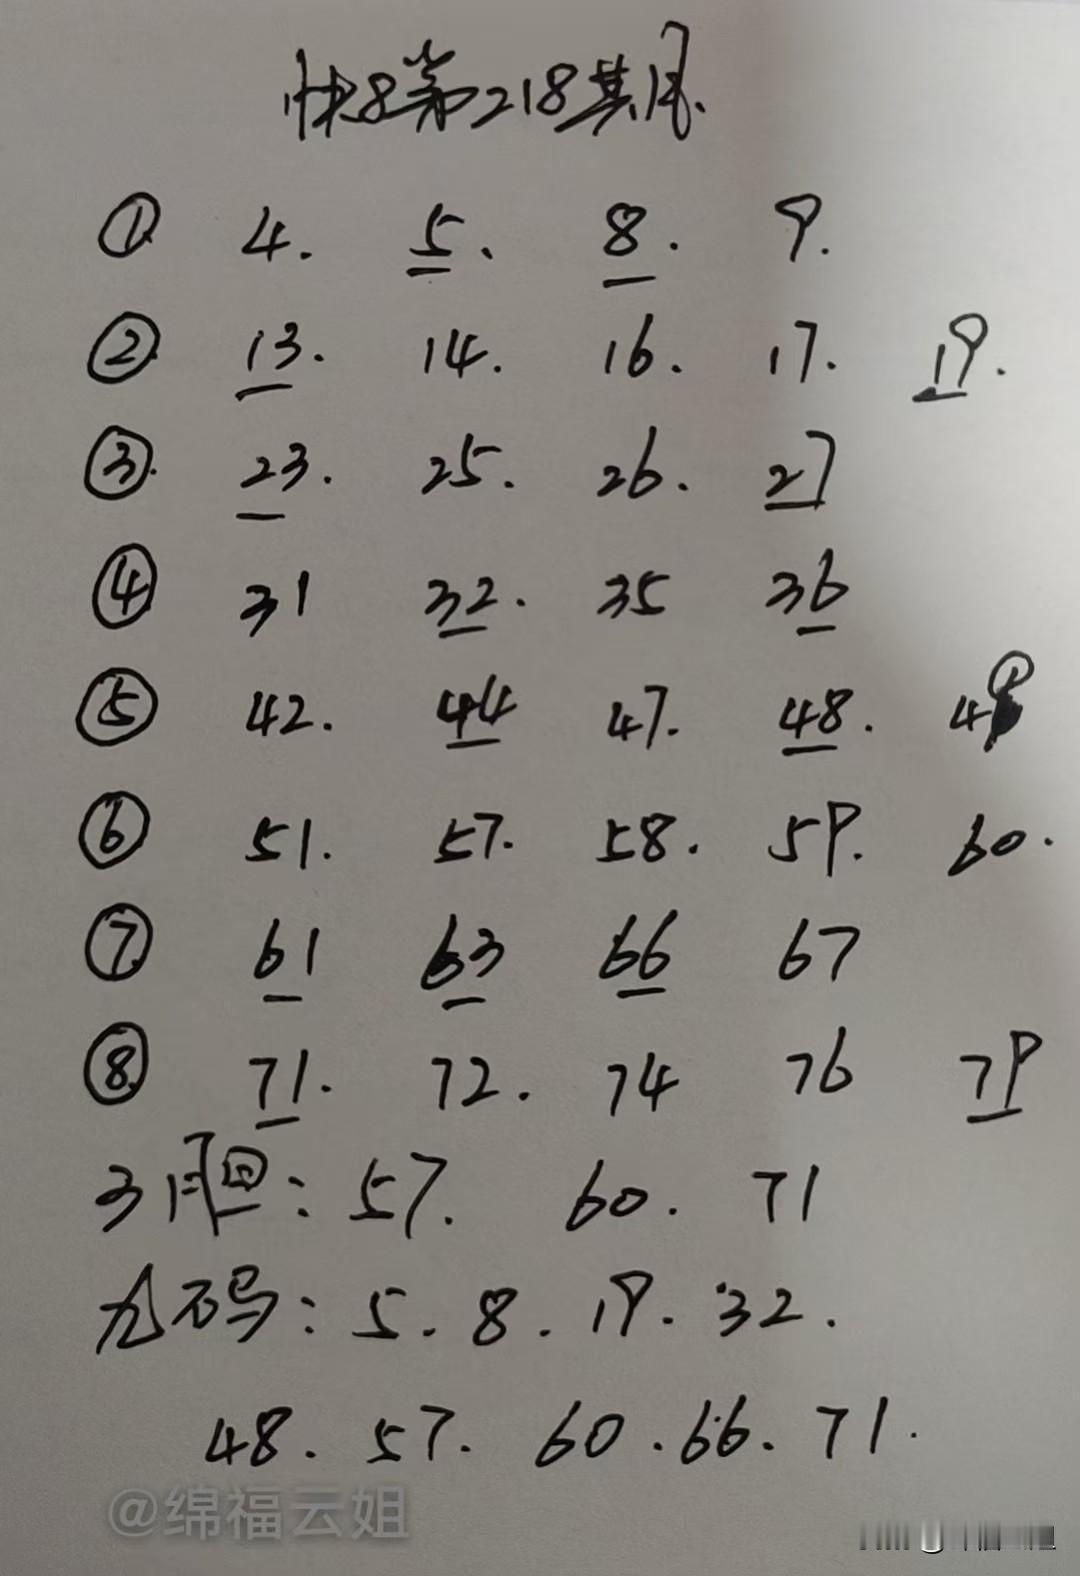 快8第218期
① 4. 5. 8. 9.
② 13. 14. 16. 17. 19.
③ 23. 25. 26. 27
④ 31 32. 35 36
⑤ 42. 44 47. 48. 49
⑥ 51. 57. 58. 59. 60.
⑦ 61 63 66 67
⑧ 71. 72. 74 76 79
3胆: 57. 60. 71
九码: 5. 8. 19. 32.
48. 57. 60. 66. 71.
@绵福云姐